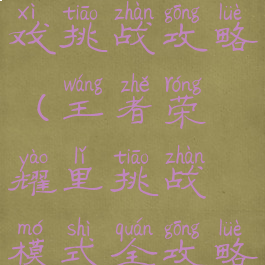 xì tiāo zhàn gōng lüè
戏挑战攻略
wáng zhě róng
（王者荣
yào lǐ tiāo zhàn
耀里挑战
mó shì quán gōng lüè
模式全攻略